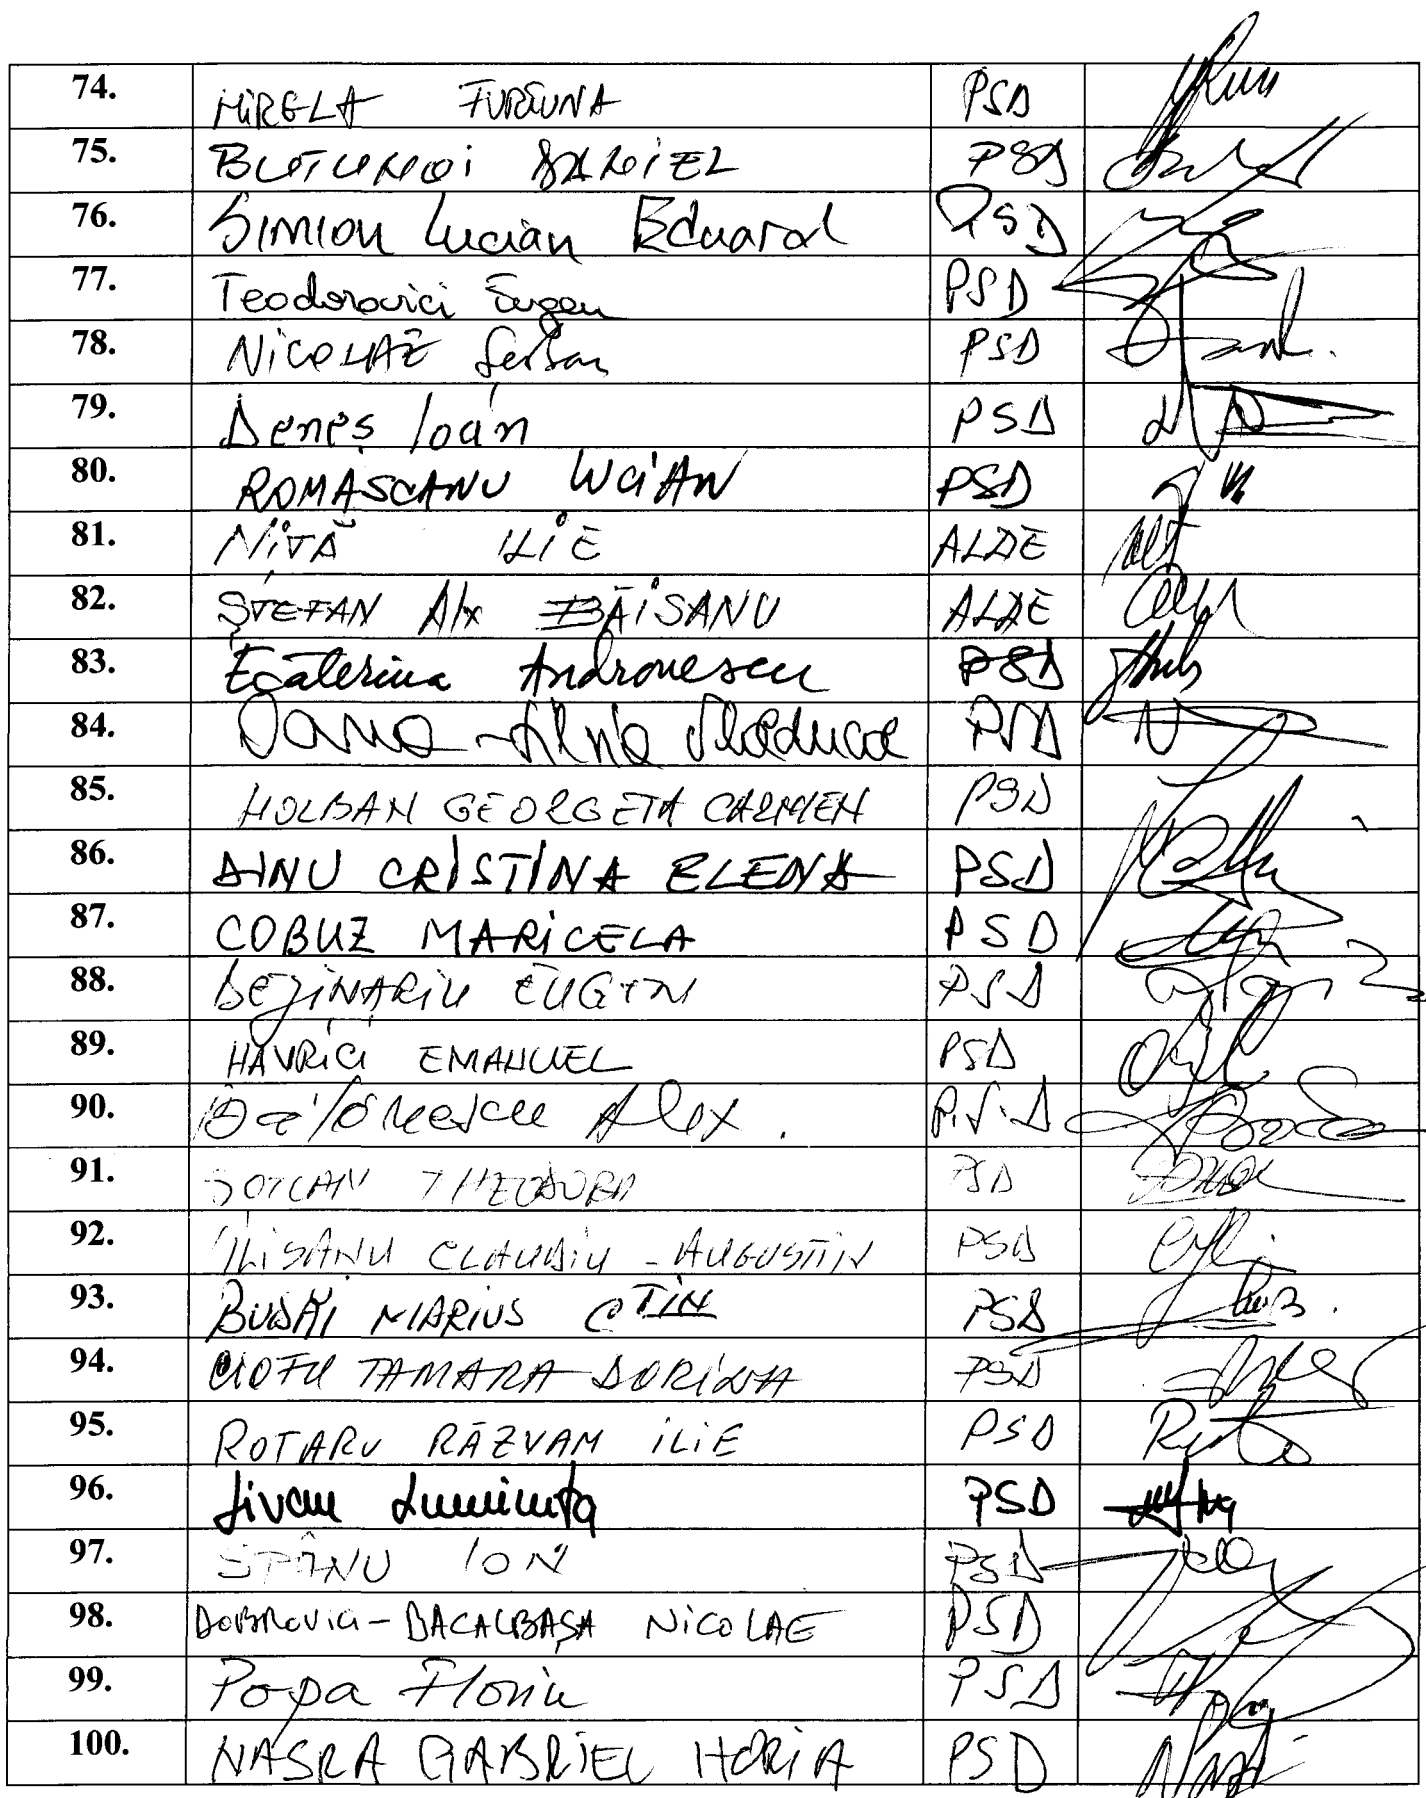 74. MIRELA FURTUNA PSD
75. BUTUNOI DANIEL PSD
76. Simion Lucian Eduard PSD
77. Teodorovici Eugen PSD
78. NICOLAE Serban PSD
79. Deneș Ioan PSD
80. ROMAȘCANU LUCIAN PSD
81. NIȚĂ ILIE ALDE
82. ȘTEFAN Alx BĂIȘANU ALDE
83. Ecaterina Andronescu PSD
84. Oana-Silvia Vlăducă PSD
85. HOLBAN GEORGETA CARMEN PSD
86. DINU CRISTINA ELENA PSD
87. COBUZ MARICELA PSD
88. BEJINARIU EUGEN PSD
89. HAVRICI EMANUEL PSD
90. Bălănescu Alex. P.S.D
91. ȘOTCAN THEODORA PSD
92. ILIȘANU CLAUDIU - AUGUSTIN PSD
93. BUDĂI MARIUS CTIN PSD
94. CIOFU TAMARA DORINA PSD
95. ROTARU RĂZVAN ILIE PSD
96. Jivan Luminița PSD
97. SPÂNU ION PSD
98. DOBROVICI-BACALBAȘA NICOLAE PSD
99. Popa Florin PSD
100. NASRA GABRIEL HORIA PSD